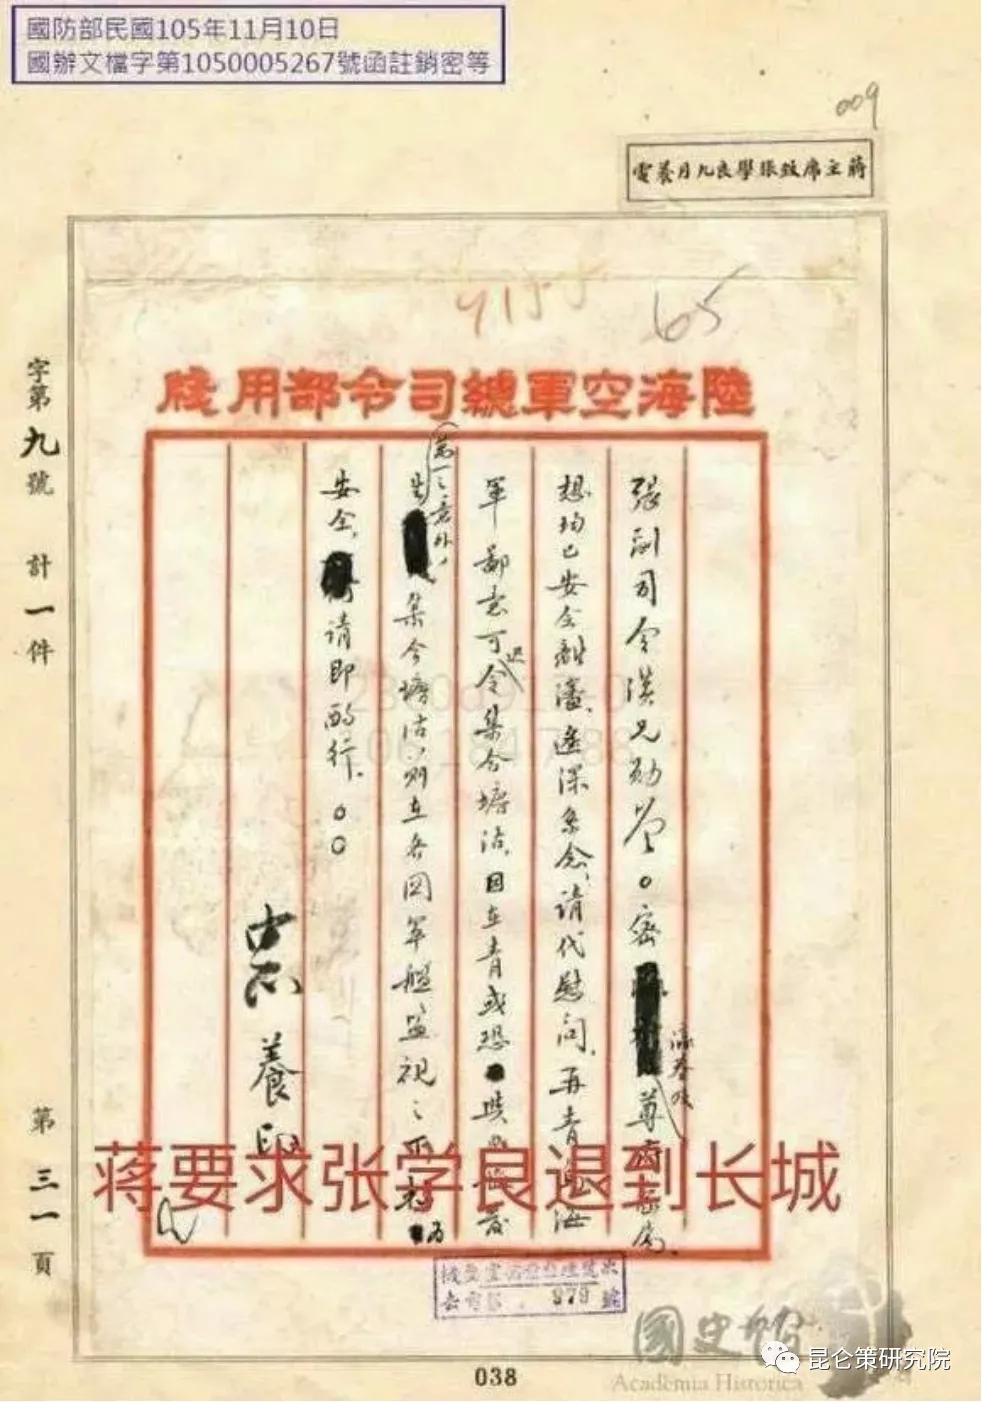 國防部民國105年11月10日
國辦文檔字第1050005267號函註銷密等
009
蔣主席致張學良九月養電
65
陸海空軍總司令部用牋
字第九號 計一件 第三一頁
張副司令漢兄勛鑒。密
瀋眷及
尊府
想均已安全離瀋,遙深系念,請代慰問。再青島海
軍鄙意可令集合塘沽,因在青或恐
遲
萬一之意外,
集合塘沽,則在各國軍艦監視之下較為
安全,請即酌行。〇〇
中正養印
蒋要求张学良退到长城
979
號
國史館
Academia Historica
昆仑策研究院
038